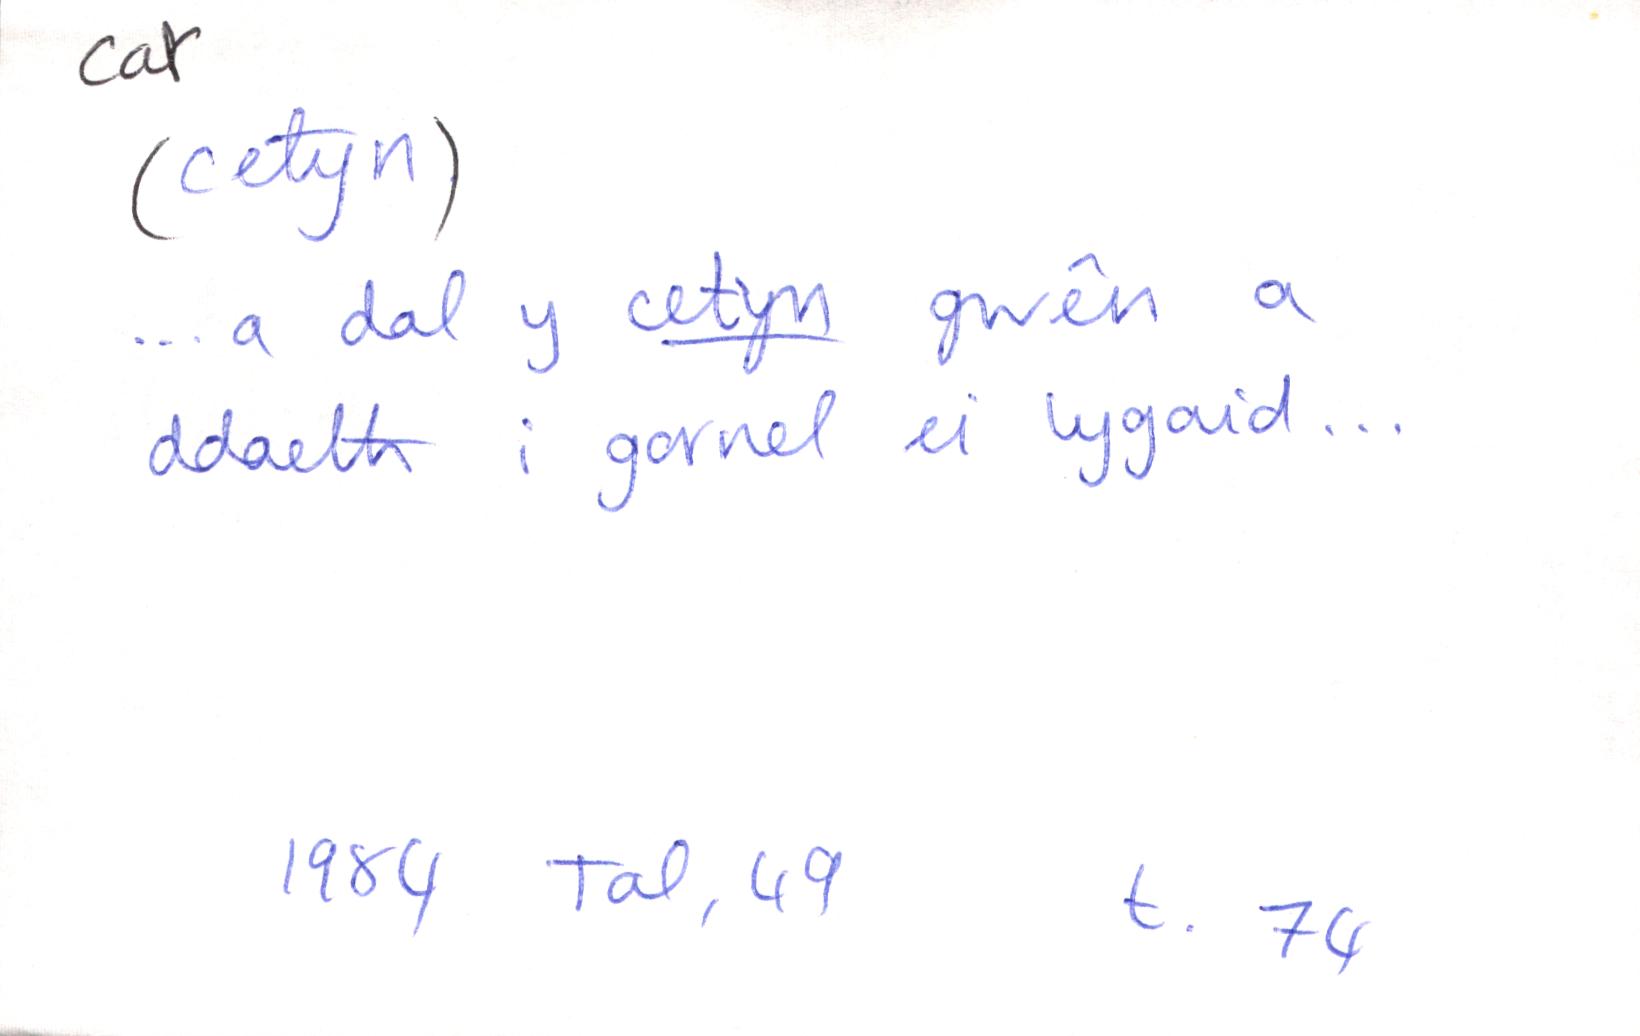 cat
(cetyn)
...a dal y cetyn gwên a
ddaeth i gornel ei lygaid...
1984 Tal, 49 t. 74